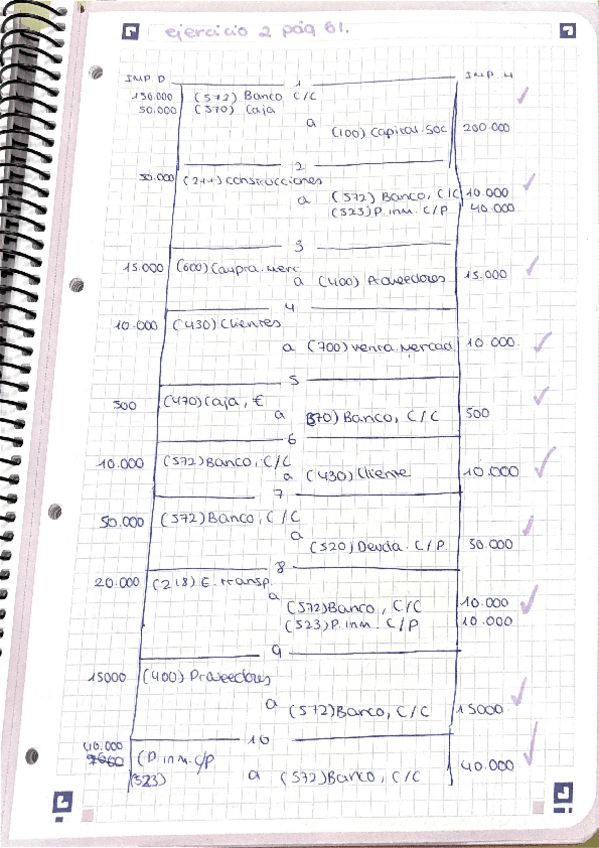 ejercicio 2 pág 61.
IMP. D 1 IMP. H
150.000 (572) Banco C/C
50.000 (570) Caja
a
(100) Capital Soc 200.000
2
50.000 (211) construcciones
a (572) Banco, C/C 10.000
(523) P. inm. C/P 40.000
3
15.000 (600) Compra. Merc
a (400) Proveedores 15.000
4
10.000 (430) Clientes
a (700) venta. Mercad 10 000
5
500 (470) Caja, €
a (570) Banco, C/C 500
6
10.000 (572) Banco, C/C
a (430) Cliente 10.000
7
50.000 (572) Banco, C/C
a
(520) Deuda. C/P. 50.000
8
20.000 (218) E. transp.
a
(572) Banco, C/C 10.000
(523) P. inm. C/P 10.000
9
15000 (400) Proveedores
a (572) Banco, C/C 15000
10
40.000
(P. inm. c/p
(523) a (572) Banco, C/C 40.000